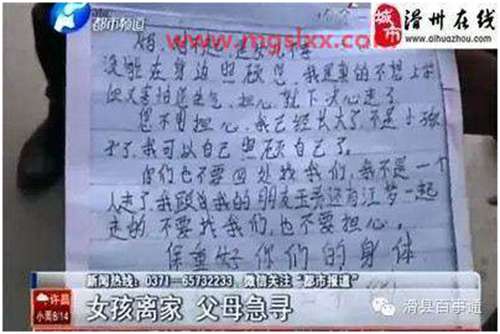 都市频道
www.mgslxx.com
城市
滑州在线
www.oihuazhou.com
没能在身边照顾您,我是真的不想上学
但又害怕您生气、担心,就下决心走了
您不用担心,我已经长大了,不是小孩
子了,我可以自己照顾自己了。
你们也不要四处找我们,我不是一个
人走了我跟我的朋友王 还有江梦一起
走的 不要找我们,也不要担心。
保重好你们的身体
新闻热线:0371—65732233,微信关注“都市报道”
许昌
小雨 8/14
女孩离家 父母急寻
滑县百事通